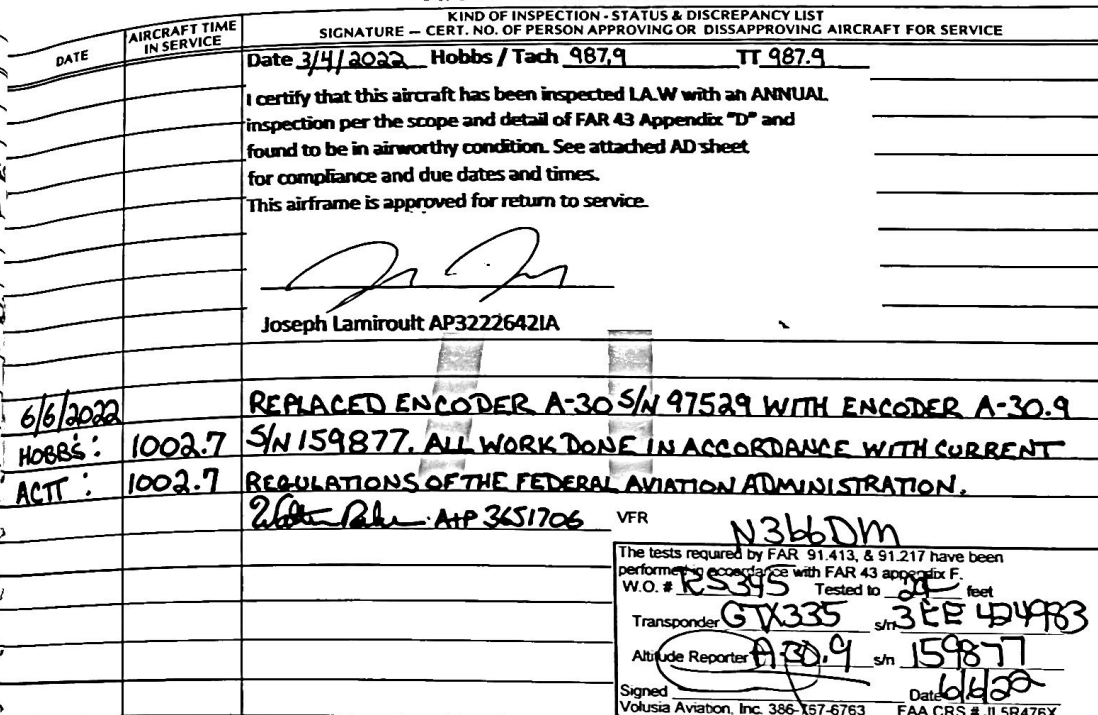 KIND OF INSPECTION - STATUS & DISCREPANCY LIST
DATE
AIRCRAFT TIME
IN SERVICE
SIGNATURE — CERT. NO. OF PERSON APPROVING OR DISSAPPROVING AIRCRAFT FOR SERVICE
Date 3/4/2022 Hobbs / Tach 987.9 TT 987.9
I certify that this aircraft has been inspected I.A.W with an ANNUAL
inspection per the scope and detail of FAR 43 Appendix "D" and
found to be in airworthy condition. See attached AD sheet
for compliance and due dates and times.
This airframe is approved for return to service.
Joseph Lamiroult AP3222642IA
6/6/2022 REPLACED ENCODER A-30 S/N 97529 WITH ENCODER A-30.9
HOBBS: 1002.7 S/N 159877. ALL WORK DONE IN ACCORDANCE WITH CURRENT
ACTT: 1002.7 REGULATIONS OF THE FEDERAL AVIATION ADMINISTRATION.
A+P 3651706
VFR N366DM
The tests required by FAR 91.413, & 91.217 have been
performed in accordance with FAR 43 appendix F.
W.O. # RS345 Tested to feet
Transponder GTX335 s/n 3EE 424983
Altitude Reporter A-30.9 s/n 159877
Signed Date 6/6/22
Volusia Aviation, Inc. 386- FAA CRS #